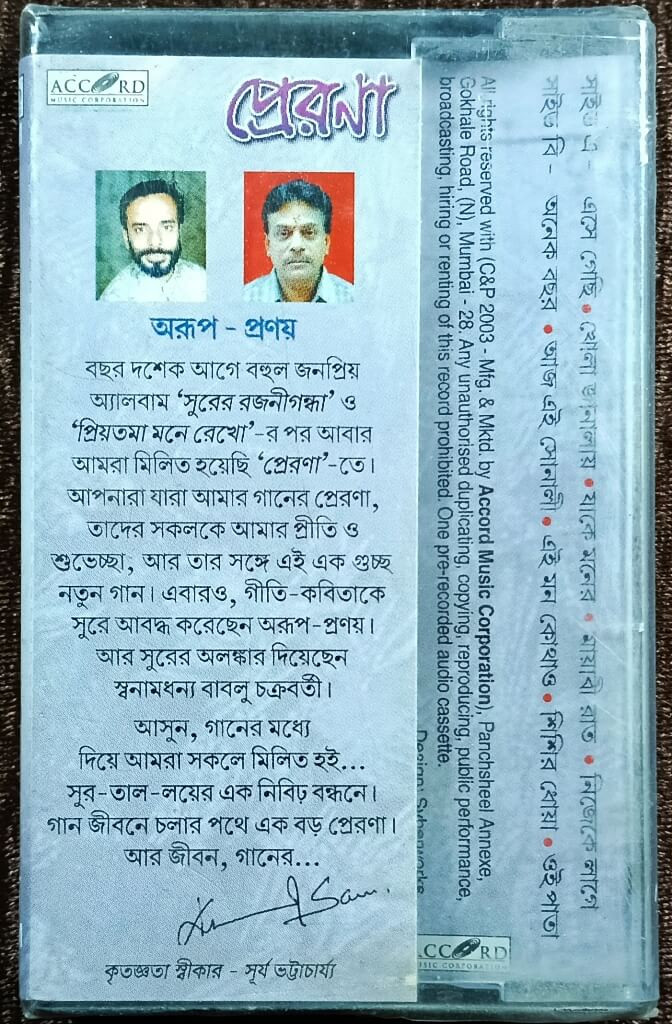 ACCORD
MUSIC CORPORATION
প্রেরণা
অরূপ - প্রণয়
বছর দশেক আগে বহুল জনপ্রিয়
অ্যালবাম ‘সুরের রজনীগন্ধা’ ও
‘প্রিয়তমা মনে রেখো’-র পর আবার
আমরা মিলিত হয়েছি ‘প্রেরণা’-তে।
আপনারা যারা আমার গানের প্রেরণা,
তাদের সকলকে আমার প্রীতি ও
শুভেচ্ছা, আর তার সঙ্গে এই এক গুচ্ছ
নতুন গান। এবারও, গীতি-কবিতাকে
সুরে আবদ্ধ করেছেন অরূপ-প্রণয়।
আর সুরের অলঙ্কার দিয়েছেন
স্বনামধন্য বাবলু চক্রবর্তী।
আসুন, গানের মধ্যে
দিয়ে আমরা সকলে মিলিত হই...
সুর-তাল-লয়ের এক নিবিঢ় বন্ধনে।
গান জীবনে চলার পথে এক বড় প্রেরণা।
আর জীবন, গানের...
কৃতজ্ঞতা স্বীকার - সূর্য ভট্টাচার্য্য
সাইড এ - এসে গেছি • খোলা জানালায় • যাকে মনের • মায়াবী রাত • নিজেকে লাগে
সাইড বি - অনেক বছর • আজ এই সোনালী • এই মন কোথাও • শিশির ধোয়া • ওই পাতা
All rights reserved with (C&P 2003 - Mfg. & Mktd. by Accord Music Corporation), Panchsheel Annexe,
Gokhale Road, (N), Mumbai - 28. Any unauthorised duplicating, copying, reproducing, public performance,
broadcasting, hiring or renting of this record prohibited. One pre-recorded audio cassette.
Design:
ACCORD
MUSIC CORPORATION